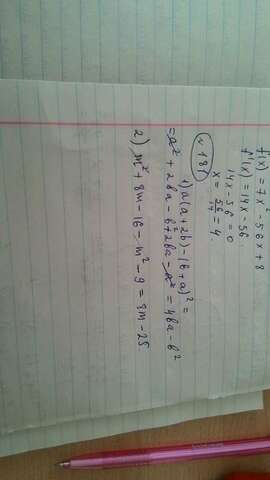 f(x) = 7x² - 56x + 8
f'(x) = 14x - 56
14x - 56 = 0
x = 56/14 = 4.
№ 181
1) a(a+2b) - (b+a)² =
= a² + 2ba - b² + 2ba - a² = 4ba - b²
2) m² + 8m - 16 - m² - 9 = 8m - 25